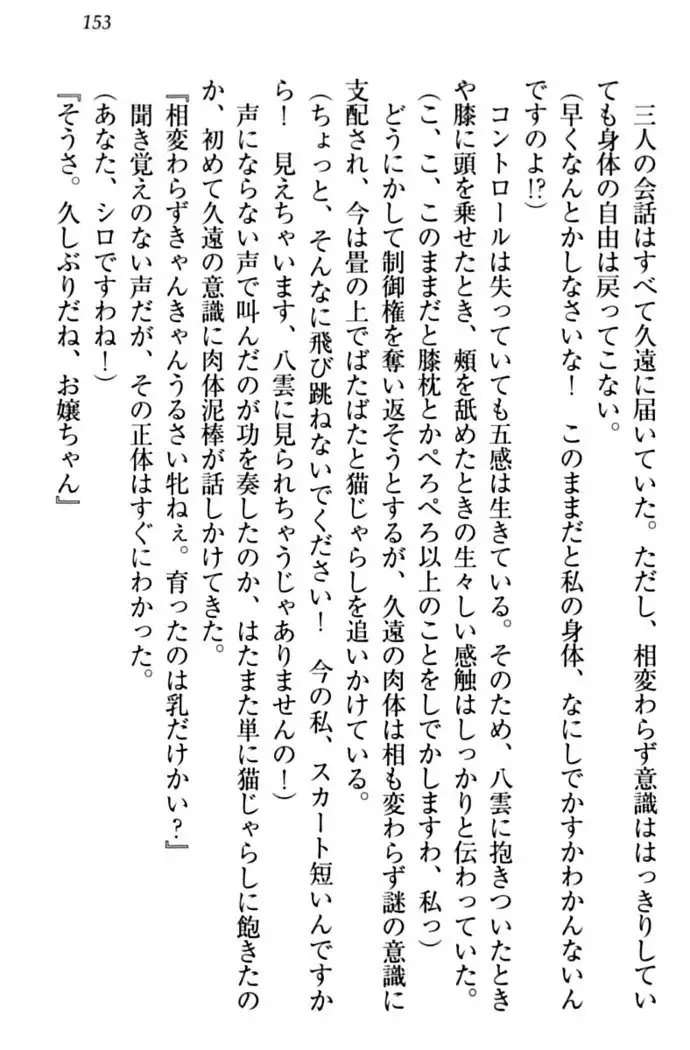 153
三人の会話はすべて久遠に届いていた。ただし、相変わらず意識ははっきりしてい
ても身体の自由は戻ってこない。
(早くなんとかしなさいな！　このままだと私の身体、なにしでかすかわかんないん
ですのよ!?)
コントロールは失っていても五感は生きている。そのため、八雲に抱きついたとき
や膝に頭を乗せたとき、頰を舐めたときの生々しい感触はしっかりと伝わっていた。
(こ、こ、このままだと膝枕とかぺろぺろ以上のことをしでかしますわ、私っ)
どうにかして制御権を奪い返そうとするが、久遠の肉体は相も変わらず謎の意識に
支配され、今は畳の上でばたばたと猫じゃらしを追いかけている。
(ちょっと、そんなに飛び跳ねないでください！　今の私、スカート短いんですか
ら！　見えちゃいます、八雲に見られちゃうじゃありませんの！)
声にならない声で叫んだのが功を奏したのか、はたまた単に猫じゃらしに飽きたの
か、初めて久遠の意識に肉体泥棒が話しかけてきた。
『相変わらずきゃんきゃんうるさい牝ねぇ。育ったのは乳だけかい？』
聞き覚えのない声だが、その正体はすぐにわかった。
(あなた、シロですわね！)
『そうさ。久しぶりだね、お嬢ちゃん』